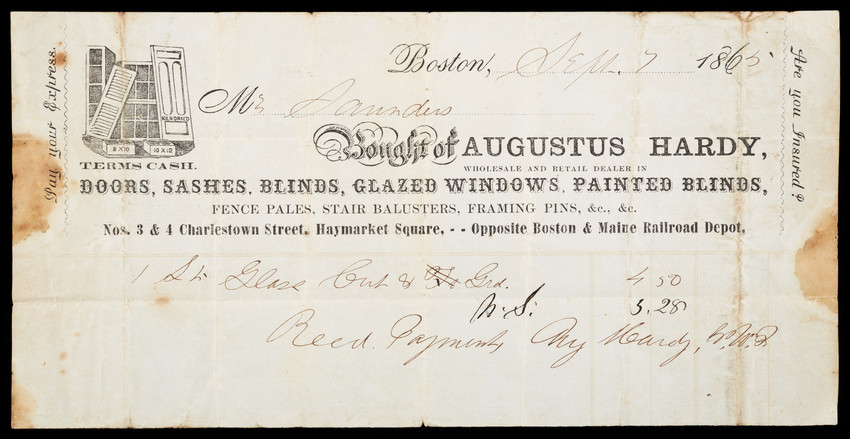 Pay your Express.
Are you Insured?
Boston, Sept. 7 1865
Mr Saunders
KILN DRIED
8 X 10
10 X 12
TERMS CASH.
Bought of AUGUSTUS HARDY,
WHOLESALE AND RETAIL DEALER IN
DOORS, SASHES, BLINDS, GLAZED WINDOWS, PAINTED BLINDS,
FENCE PALES, STAIR BALUSTERS, FRAMING PINS, &c., &c.
Nos. 3 & 4 Charlestown Street, Haymarket Square, - - Opposite Boston & Maine Railroad Depot,
1 Glass Cut & Grd. 4 50
N. S. 5.28
Recd. Payment, Aug Hardy,